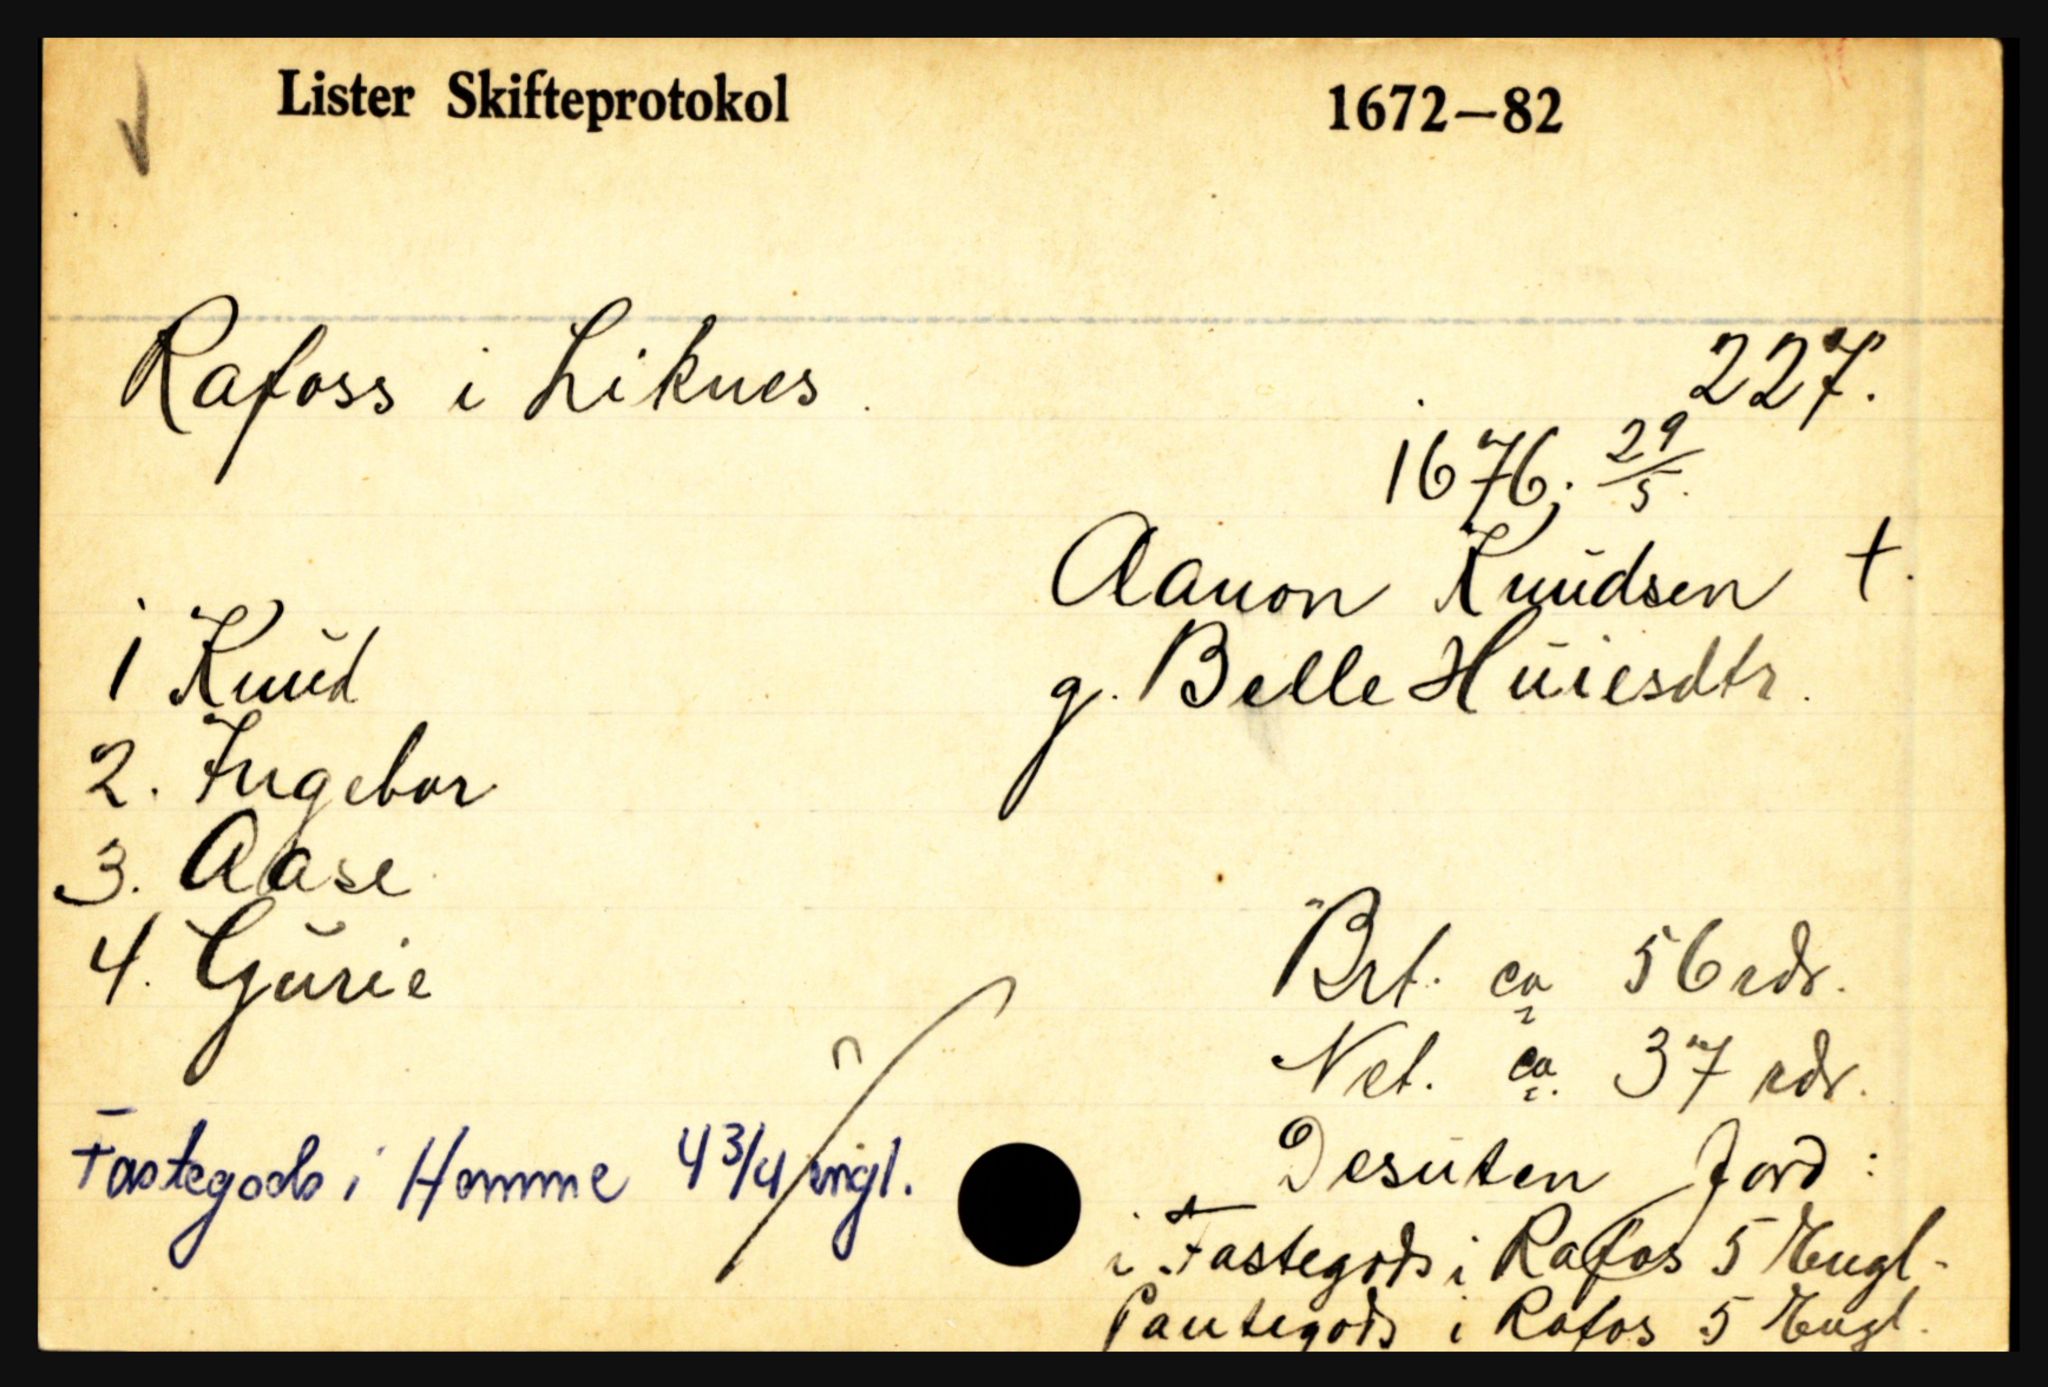 Lister Skifteprotokol 1672–82
Rafoss i Liknes.
227.
1676; 29/5.
Aanon Knŭdsen †.
g. Belle Hŭiesdtr.
1 Knŭd
2. Ingebor
3. Aase
4. Gŭrie
Brt. ca 56 rdr.
Net. ca. 37 rdr.
Desŭten Jord:
i Fastegods i Rafos 5 Engl.
Pantegods i Rafos 5 Engl.
Fastegods i Homme 4 3/4 engl.